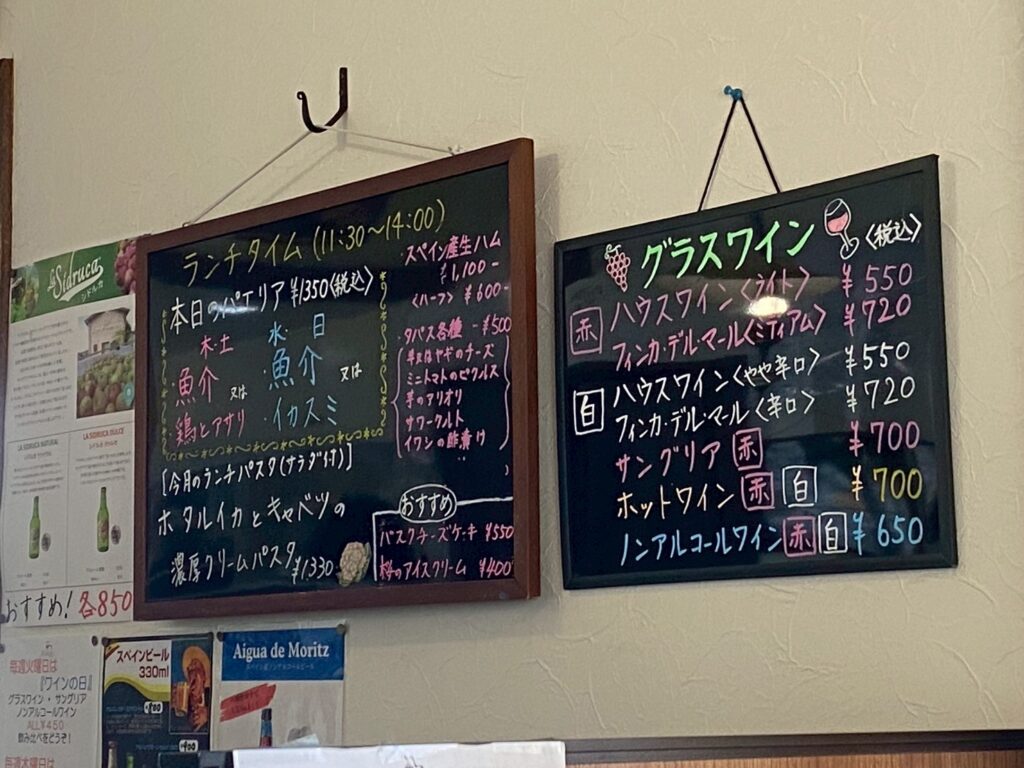 ランチタイム(11:30〜14:00)
本日のパエリア ¥1350〈税込〉
木・土
・魚介 又は
・鶏とアサリ
水・日
・魚介 又は
・イカスミ
[今月のランチパスタ(サラダ付)]
ホタルイカとキャベツの
濃厚クリームパスタ ¥1330
・スペイン産生ハム
¥1,100-
〈ハーフ〉 ¥600-
・タパス各種 -¥500
羊又はヤギのチーズ
ミニトマトのピクルス
芋のアリオリ
サワークルト
イワシの酢漬け
おすすめ
バスクチーズケーキ ¥550
梅のアイスクリーム ¥400
グラスワイン 〈税込〉
赤 ハウスワイン〈ライト〉 ¥550
フィンカ・デル・マール〈ミディアム〉 ¥720
白 ハウスワイン〈やや辛口〉 ¥550
フィンカ・デル・マール〈辛口〉 ¥720
サングリア 赤 ¥700
ホットワイン 赤 白 ¥700
ノンアルコールワイン 赤 白 ¥650
La Sidruca
シドルカ
LA SIDRUCA NATURAL
LA SIDRUCA DULCE
おすすめ! 各850
毎週火曜日は
『ワインの日』
グラスワイン・サングリア
ノンアルコールワイン
ALL¥450
飲み比べをどうぞ!
毎週木曜日は
スペインビール
330ml
Aigua de Moritz